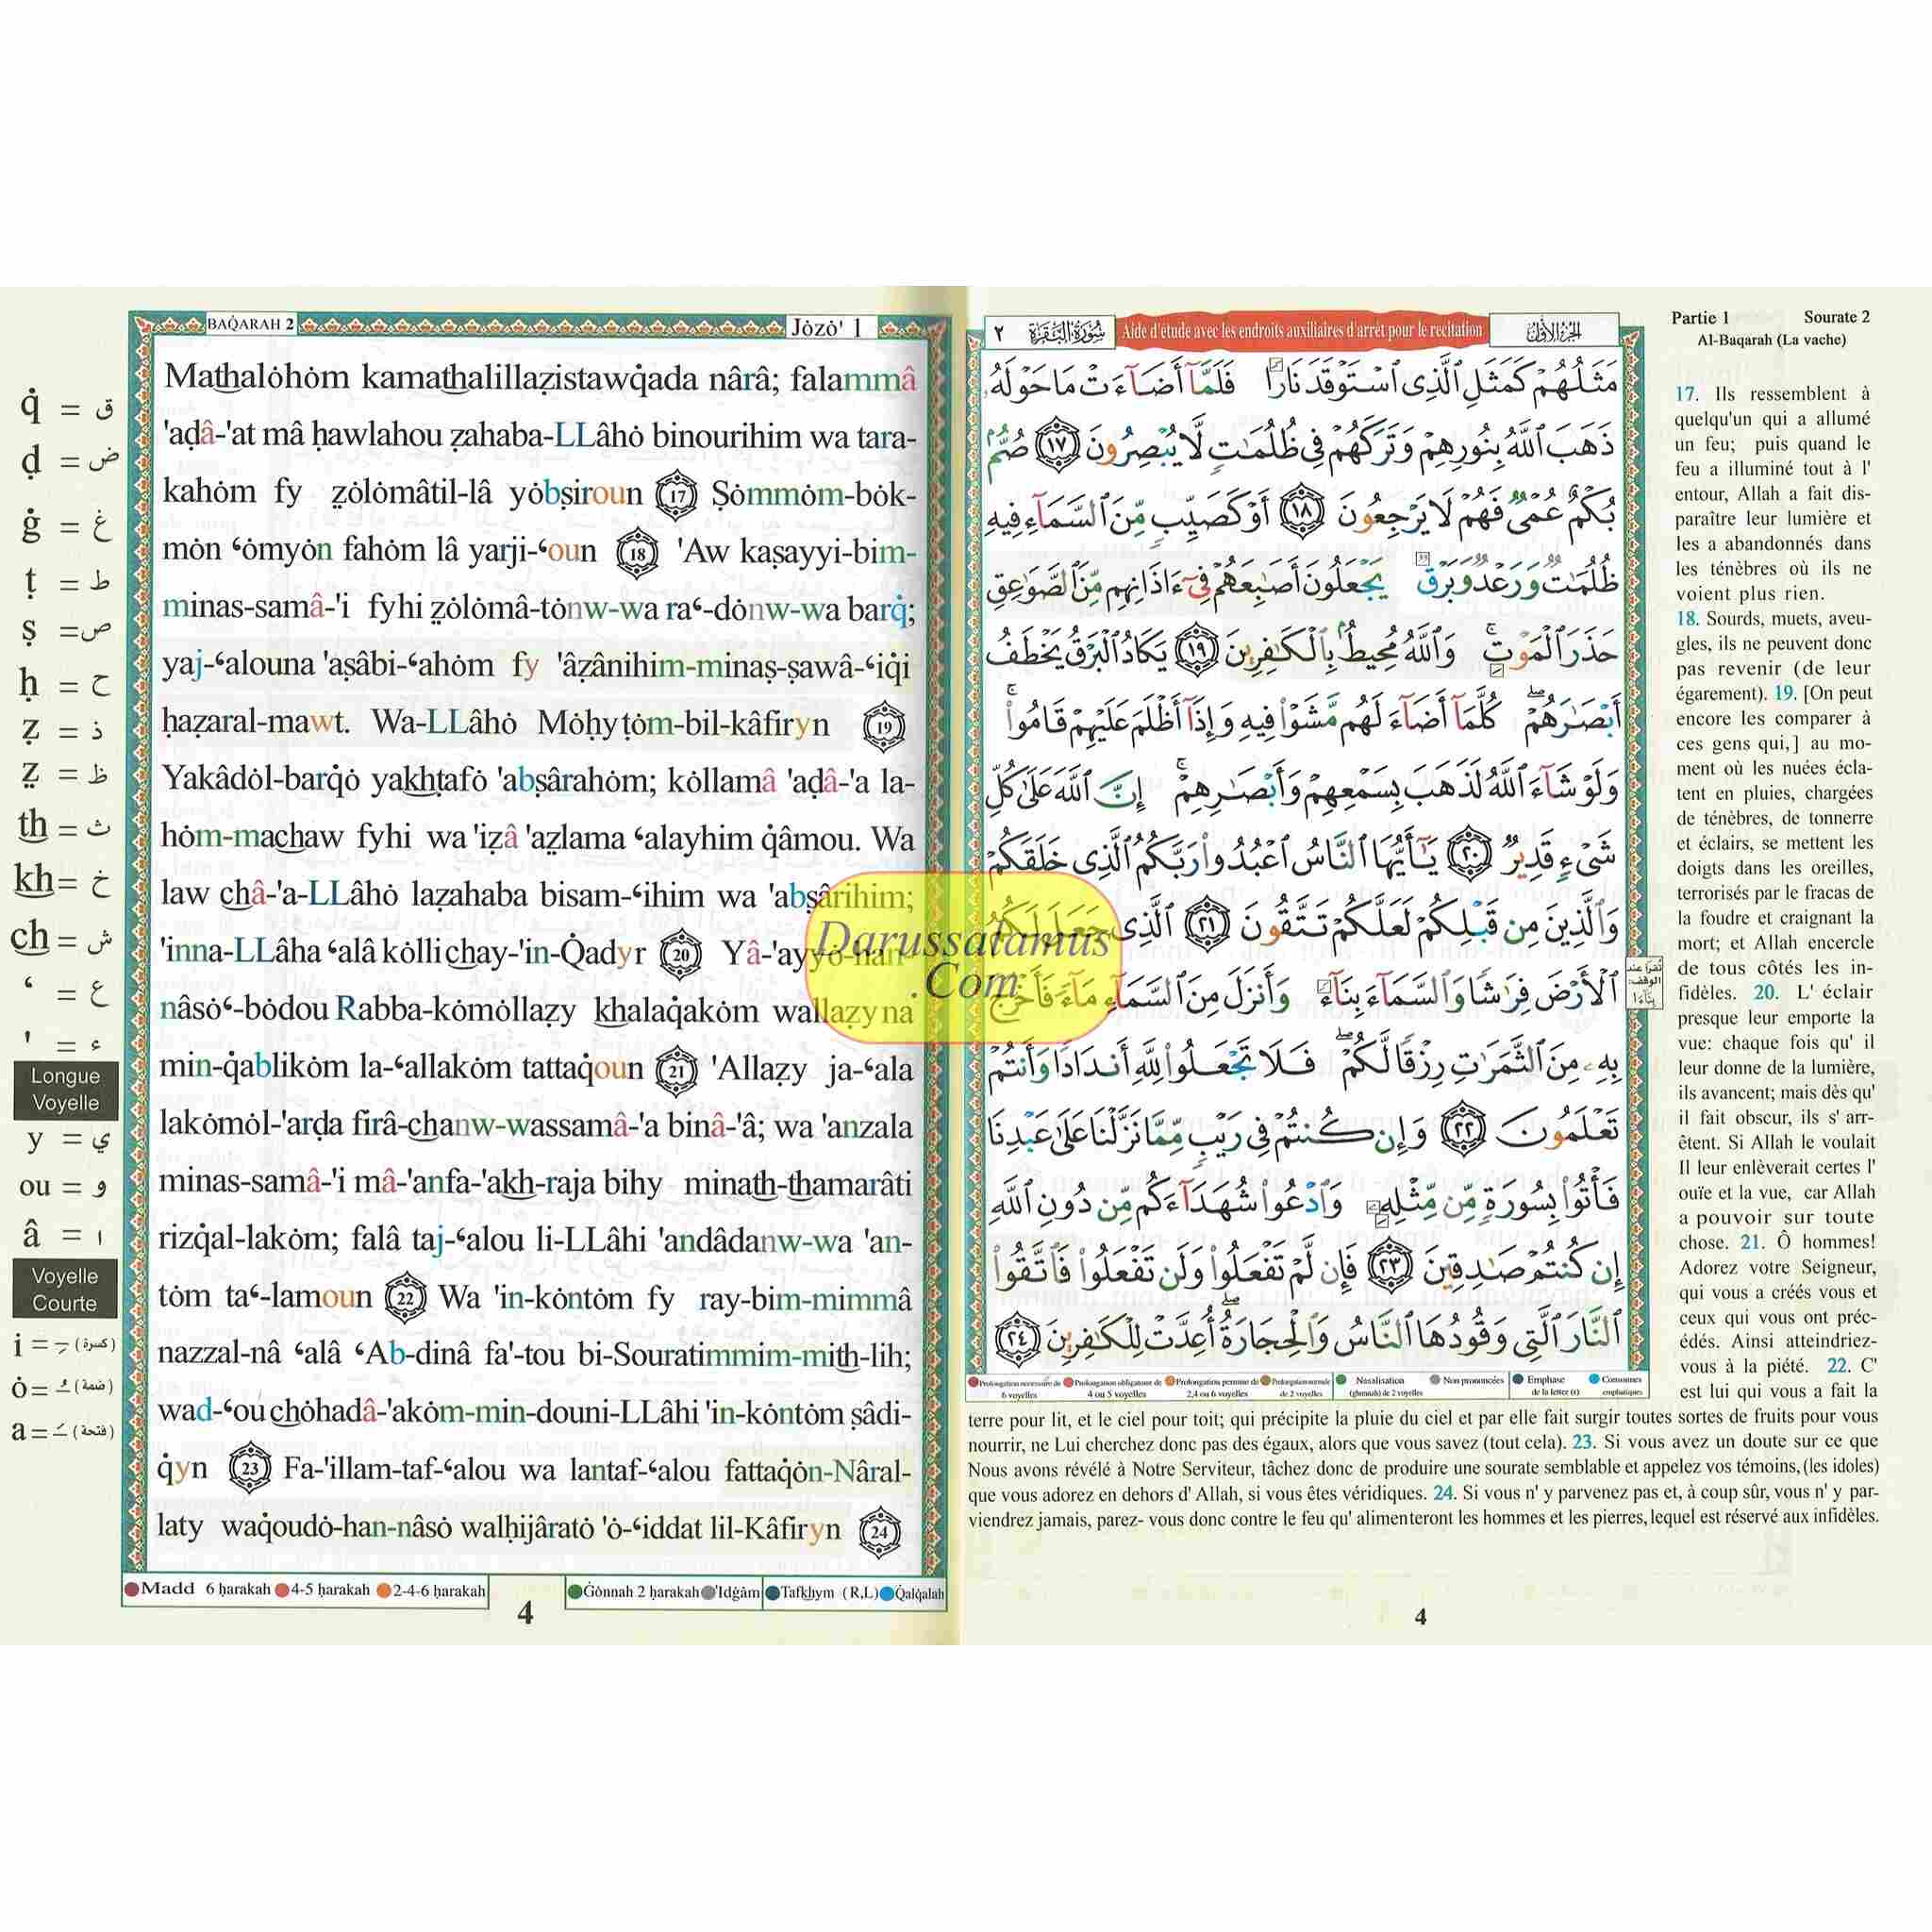 BAQ̇ARAH 2
Jȯzȯ' 1
Mathalȯhȯm kamathalillaẓistawq̇ada nârâ; falammâ
'aḍâ-'at mâ ḥawlahou ẓahaba-LLâhȯ binourihim wa tara-
kahȯm fy ẓ̱ȯlȯmâtil-lâ yȯbṣiroun 17 Ṣȯmmȯm-bȯk-
mȯn ʻȯmyȯn fahȯm lâ yarji-ʻoun 18 'Aw kaṣayyi-bim-
minas-samâ-'i fyhi ẓ̱ȯlȯmâ-tȯnw-wa raʻ-dȯnw-wa barq̇;
yaj-ʻalouna 'aṣâbi-ʻahȯm fy 'âẓânihim-minaṣ-ṣawâ-ʻiq̇i
ḥaẓaral-mawt. Wa-LLâhȯ Mȯḥyṭȯm-bil-kâfiryn 19
Yakâdȯl-barq̇ȯ yakhṭafȯ 'abṣârahȯm; kȯllamâ 'aḍâ-'a la-
hȯm-machaw fyhi wa 'iẓâ 'aẓ̱lama ʻalayhim q̇âmou. Wa
law châ-'a-LLâhȯ laẓahaba bisam-ʻihim wa 'abṣârihim;
'inna-LLâha ʻalâ kȯlli chay-'in-Q̇adyr 20 Yâ-'ayyȯ-han-
nâsȯʻ-bȯdou Rabba-kȯmȯllaẓy khalaq̇akȯm wallaẓyna
min-q̇ablikȯm la-ʻallakȯm tattaq̇oun 21 'Allaẓy ja-ʻala
lakȯmȯl-'arḍa firâ-chanw-wassamâ-'a binâ-'â; wa 'anzala
minas-samâ-'i mâ-'anfa-'akh-raja bihy minath-thamarâti
rizq̇al-lakȯm; falâ taj-ʻalou li-LLâhi 'andâdanw-wa 'an-
tȯm taʻ-lamoun 22 Wa 'in-kȯntȯm fy ray-bim-mimmâ
nazzal-nâ ʻalâ ʻAb-dinâ fa'-tou bi-Souratimmim-mith-lih;
wad-ʻou chȯhadâ-'akȯm-min-douni-LLâhi 'in-kȯntȯm ṣâdi-
q̇yn 23 Fa-'illam-taf-ʻalou wa lantaf-ʻalou fattaq̇ȯn-Nâral-
laty waq̇oudȯ-han-nâsȯ walḥijâratȯ 'ȯ-ʻiddat lil-Kâfiryn 24
Madd 6 ḥarakah 4-5 ḥarakah 2-4-6 ḥarakah
Ġȯnnah 2 ḥarakah 'Idġâm Tafkhym (R,L) Q̇alq̇alah
4
q̇ = ق
ḍ = ض
ġ = غ
ṭ = ط
ṣ = ص
ḥ = ح
ẓ = ذ
ẓ̱ = ظ
th = ث
kh = خ
ch = ش
ʻ = ع
' = ء
Longue
Voyelle
y = ي
ou = و
â = ا
Voyelle
Courte
i = ـِ (كسرة)
ȯ = ـُ (ضمة)
a = ـَ (فتحة)
٢ سُورَةُ البَقَرَة
Aide d'étude avec les endroits auxiliaires d'arrêt pour le recitation
الجزء الأول
مَثَلُهُمْ كَمَثَلِ ٱلَّذِى ٱسْتَوْقَدَ نَارًا فَلَمَّآ أَضَآءَتْ مَا حَوْلَهُۥ
ذَهَبَ ٱللَّهُ بِنُورِهِمْ وَتَرَكَهُمْ فِى ظُلُمَـٰتٍ لَّا يُبْصِرُونَ ١٧ صُمٌّۢ
بُكْمٌ عُمْىٌ فَهُمْ لَا يَرْجِعُونَ ١٨ أَوْ كَصَيِّبٍ مِّنَ ٱلسَّمَآءِ فِيهِ
ظُلُمَـٰتٌ وَرَعْدٌ وَبَرْقٌ يَجْعَلُونَ أَصَـٰبِعَهُمْ فِىٓ ءَاذَانِهِم مِّنَ ٱلصَّوَٰعِقِ
حَذَرَ ٱلْمَوْتِ ۚ وَٱللَّهُ مُحِيطٌۢ بِٱلْكَـٰفِرِينَ ١٩ يَكَادُ ٱلْبَرْقُ يَخْطَفُ
أَبْصَـٰرَهُمْ ۖ كُلَّمَآ أَضَآءَ لَهُم مَّشَوْا۟ فِيهِ وَإِذَآ أَظْلَمَ عَلَيْهِمْ قَامُوا۟ ۚ
وَلَوْ شَآءَ ٱللَّهُ لَذَهَبَ بِسَمْعِهِمْ وَأَبْصَـٰرِهِمْ ۚ إِنَّ ٱللَّهَ عَلَىٰ كُلِّ
شَىْءٍ قَدِيرٌ ٢٠ يَـٰٓأَيُّهَا ٱلنَّاسُ ٱعْبُدُوا۟ رَبَّكُمُ ٱلَّذِى خَلَقَكُمْ
وَٱلَّذِينَ مِن قَبْلِكُمْ لَعَلَّكُمْ تَتَّقُونَ ٢١ ٱلَّذِى جَعَلَ لَكُمُ
ٱلْأَرْضَ فِرَٰشًا وَٱلسَّمَآءَ بِنَآءً وَأَنزَلَ مِنَ ٱلسَّمَآءِ مَآءً فَأَخْرَجَ
بِهِۦ مِنَ ٱلثَّمَرَٰتِ رِزْقًا لَّكُمْ ۖ فَلَا تَجْعَلُوا۟ لِلَّهِ أَندَادًا وَأَنتُمْ
تَعْلَمُونَ ٢٢ وَإِن كُنتُمْ فِى رَيْبٍ مِّمَّا نَزَّلْنَا عَلَىٰ عَبْدِنَا
فَأْتُوا۟ بِسُورَةٍ مِّن مِّثْلِهِۦ وَٱدْعُوا۟ شُهَدَآءَكُم مِّن دُونِ ٱللَّهِ
إِن كُنتُمْ صَـٰدِقِينَ ٢٣ فَإِن لَّمْ تَفْعَلُوا۟ وَلَن تَفْعَلُوا۟ فَٱتَّقُوا۟
ٱلنَّارَ ٱلَّتِى وَقُودُهَا ٱلنَّاسُ وَٱلْحِجَارَةُ ۖ أُعِدَّتْ لِلْكَـٰفِرِينَ ٢٤
تُقرَأ عند
الوقف:
بِنَاءَا
Prolongation nécessaire de Prolongation obligatoire de Prolongation permise de Prolongation normale Nasalisation Non prononcées Emphase Consonnes
6 voyelles 4 ou 5 voyelles 2,4 ou 6 voyelles de 2 voyelles (ghunnah) de 2 voyelles de la lettre (r) emphatiques
Partie 1 Sourate 2
Al-Baqarah (La vache)
17. Ils ressemblent à
quelqu'un qui a allumé
un feu; puis quand le
feu a illuminé tout à l'
entour, Allah a fait dis-
paraître leur lumière et
les a abandonnés dans
les ténèbres où ils ne
voient plus rien.
18. Sourds, muets, aveu-
gles, ils ne peuvent donc
pas revenir (de leur
égarement). 19. [On peut
encore les comparer à
ces gens qui,] au mo-
ment où les nuées écla-
tent en pluies, chargées
de ténèbres, de tonnerre
et éclairs, se mettent les
doigts dans les oreilles,
terrorisés par le fracas de
la foudre et craignant la
mort; et Allah encercle
de tous côtés les in-
fidèles. 20. L' éclair
presque leur emporte la
vue: chaque fois qu' il
leur donne de la lumière,
ils avancent; mais dès qu'
il fait obscur, ils s' arr-
êtent. Si Allah le voulait
Il leur enlèverait certes l'
ouïe et la vue, car Allah
a pouvoir sur toute
chose. 21. Ô hommes!
Adorez votre Seigneur,
qui vous a créés vous et
ceux qui vous ont préc-
édés. Ainsi atteindriez-
vous à la piété. 22. C'
est lui qui vous a fait la
terre pour lit, et le ciel pour toit; qui précipite la pluie du ciel et par elle fait surgir toutes sortes de fruits pour vous
nourrir, ne Lui cherchez donc pas des égaux, alors que vous savez (tout cela). 23. Si vous avez un doute sur ce que
Nous avons révélé à Notre Serviteur, tâchez donc de produire une sourate semblable et appelez vos témoins, (les idoles)
que vous adorez en dehors d' Allah, si vous êtes véridiques. 24. Si vous n' y parvenez pas et, à coup sûr, vous n' y par-
viendrez jamais, parez- vous donc contre le feu qu' alimenteront les hommes et les pierres, lequel est réservé aux infidèles.
4
Darussalamus
.Com